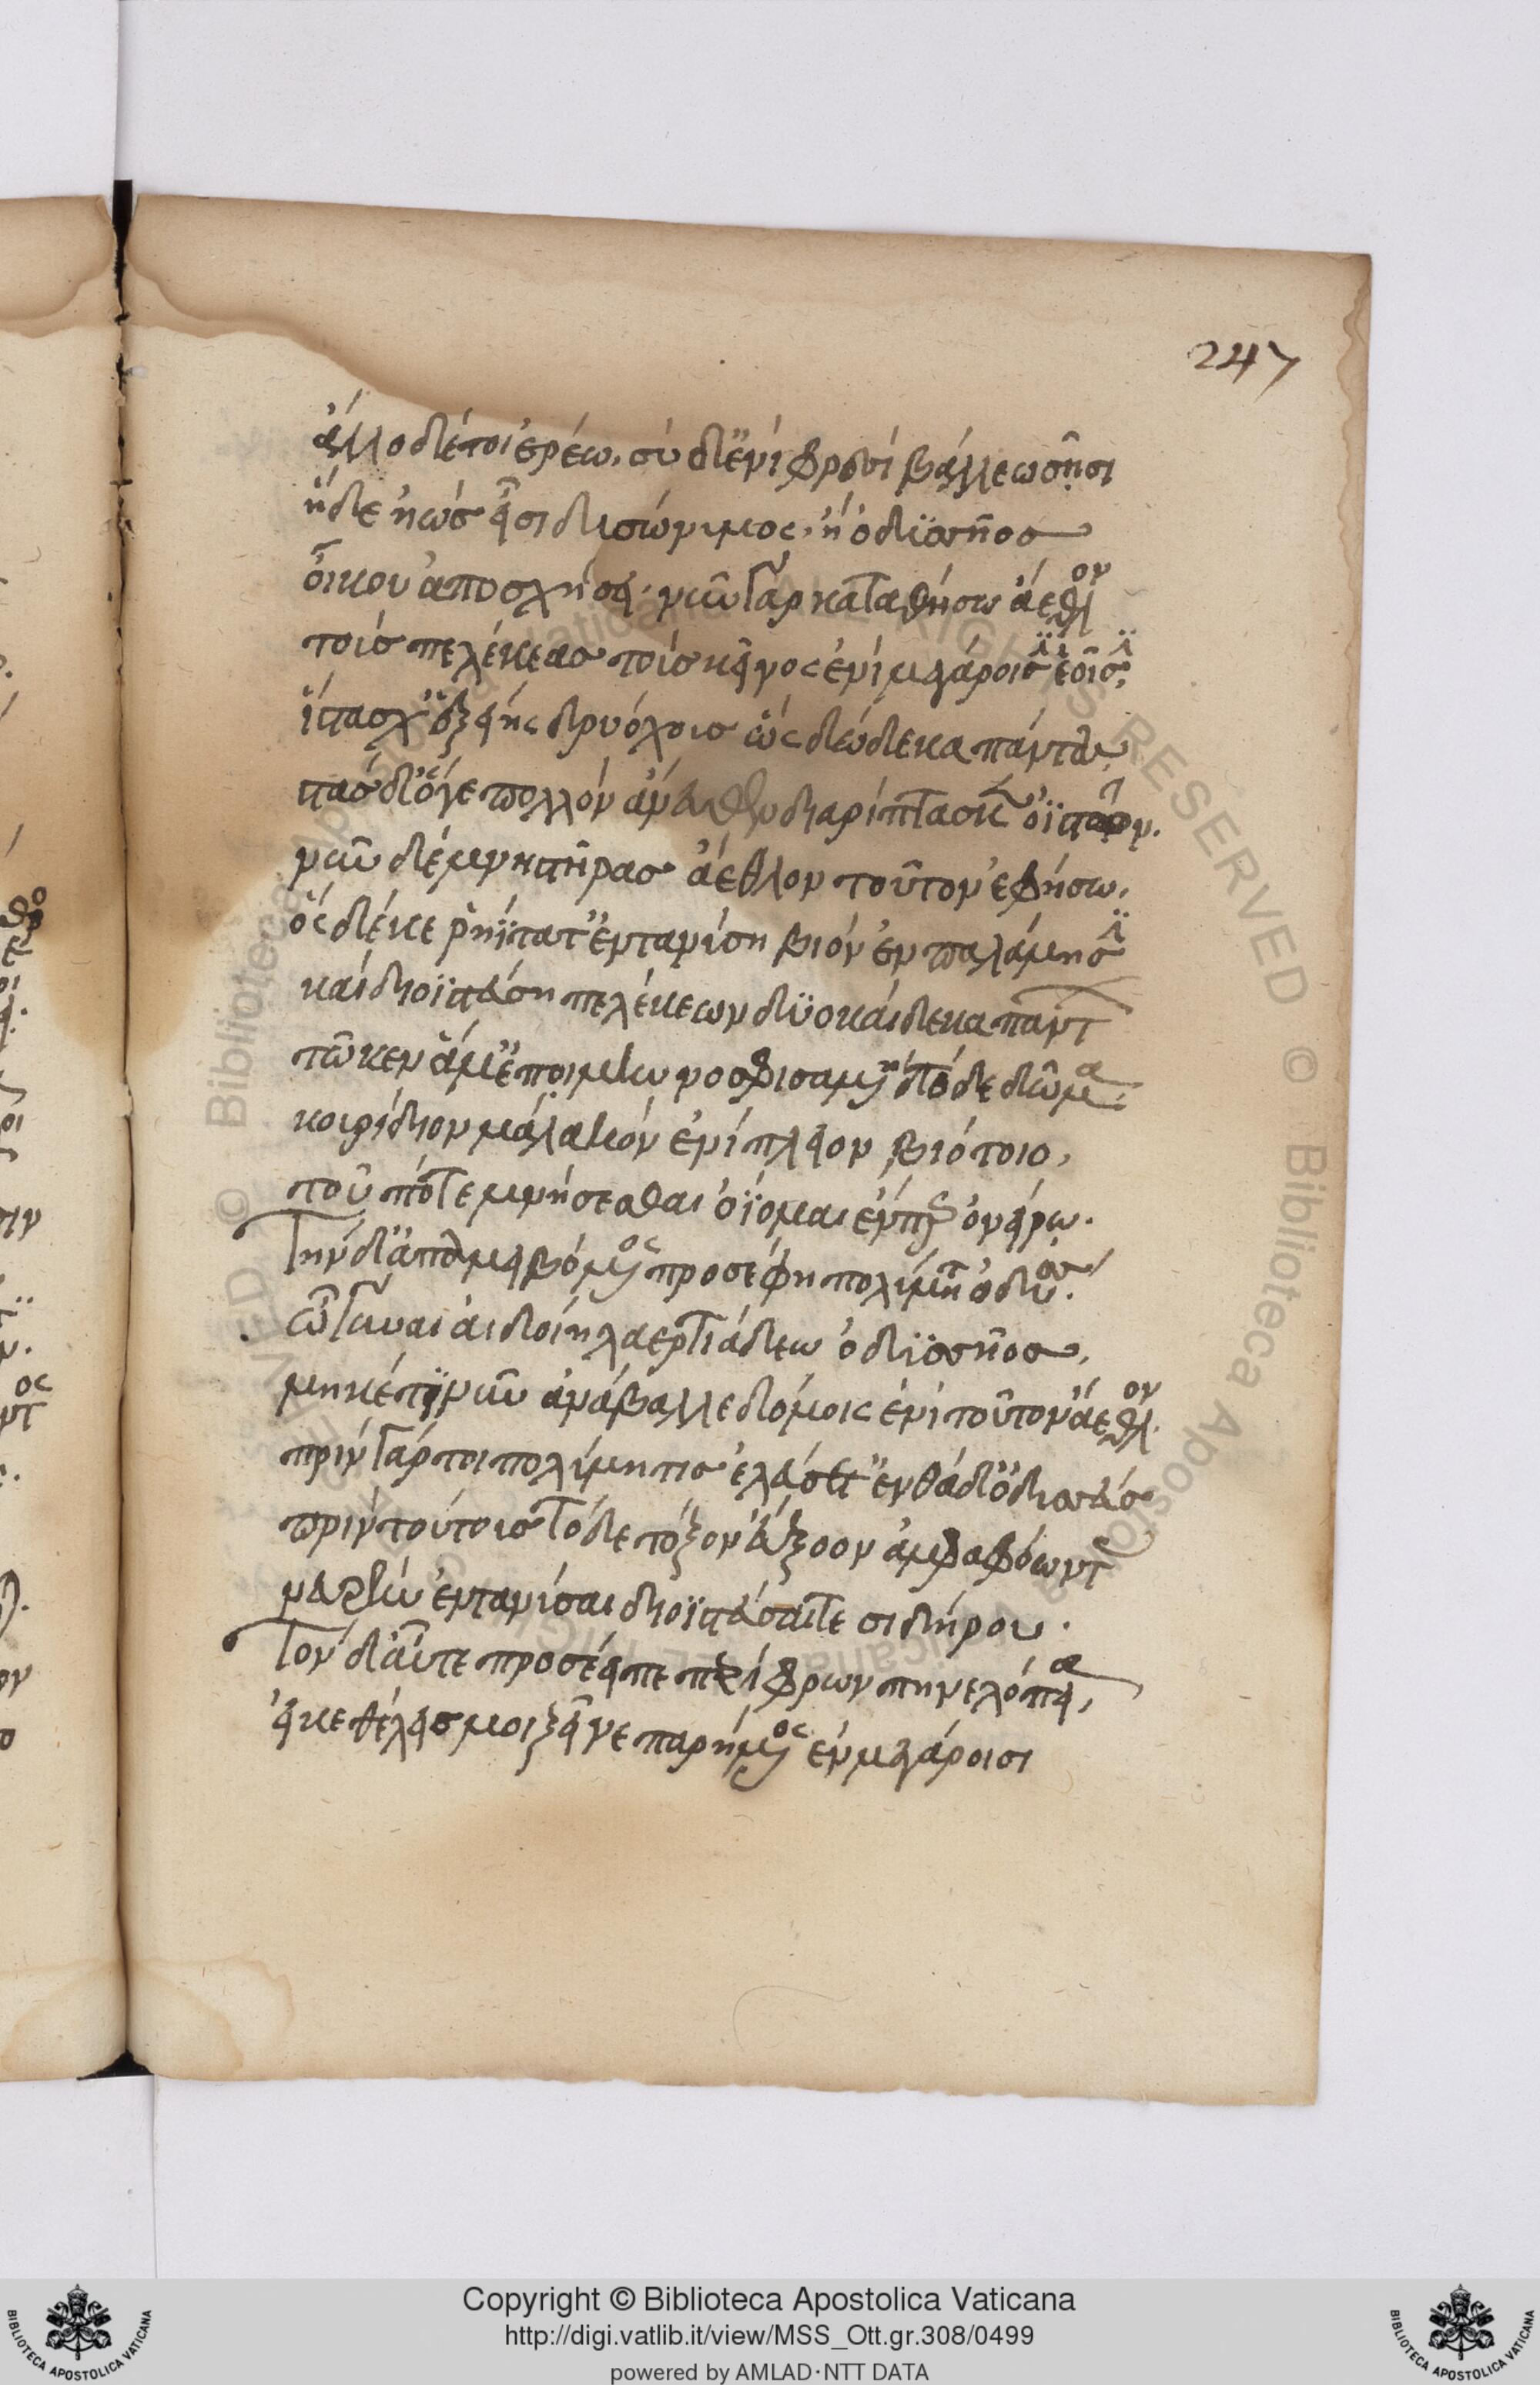 247
ἄλλο δέ τοι ἐρέω, σὺ δ' ἐνὶ φρεσὶ βάλλεο σῇσι
ἥδε ἠὼς εἶσι δυσώνυμος, ἥ ὀδυσσῆος
οἴκου ἀποσχήσει· νῦν γὰρ καταθήσω ἄεθλον
τοὺς πελέκεας τοὺς κεῖνος ἐνὶ μεγάροισιν ἑοῖσιν,
ἵστασχ' ἑξείης δρυόχους ὣς δώδεκα πάντας,
στὰς δ' ὅγε πολλὸν ἄνευθε διαρίπτασκεν ὀϊστόν.
νῦν δὲ μνηστῆρας ἄεθλον τοῦτον ἐφήσω,
ὃς δέ κε ῥηΐτατ' ἐντανύση βιὸν ἐν παλάμησιν
καὶ διοϊστεύση πελέκεων δϋοκαίδεκα πάντων
τῶ κεν ἅμ' ἑποίμην νοσφισαμένη τόδε δῶμα
κουρίδιον μάλα καλόν ἐνίπλειον βιότοιο,
τοῦ ποτε μνήσεσθαι ὀΐομαι ἔν περ ὀνείρω.
Τὴν δ' ἀπαμειβόμενος προσέφη πολύμητις ὀδυσσεύς.
ὦ γύναι αἰδοίη λαερτιάδεω ὀδυσσῆος,
μηκέτι νῦν ἀνάβαλλε δόμοις ἔνι τοῦτον ἄεθλον.
πρὶν γάρ τοι πολύμητις ἐλεύσετ' ἐνθάδ' ὀδυσσεύς
πρὶν τούτους τόδε τόξον ἐΰξοον ἀμφαφόωντας
νευρὴν ἐντανύσαι διοϊστεῦσαί τε σιδήρου.
Τὸν δ' αὖτε προσέειπε περίφρων πηνελόπεια,
εἴ κ' ἐθέλεις μοι ξεῖνε παρήμενος ἐν μεγάροισι
Copyright © Biblioteca Apostolica Vaticana
http://digi.vatlib.it/view/MSS_Ott.gr.308/0499
powered by AMLAD·NTT DATA